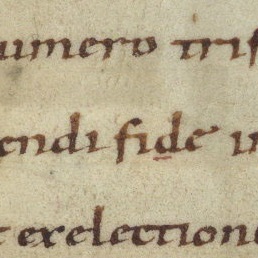 umero tris
endi fide in
t exelectione